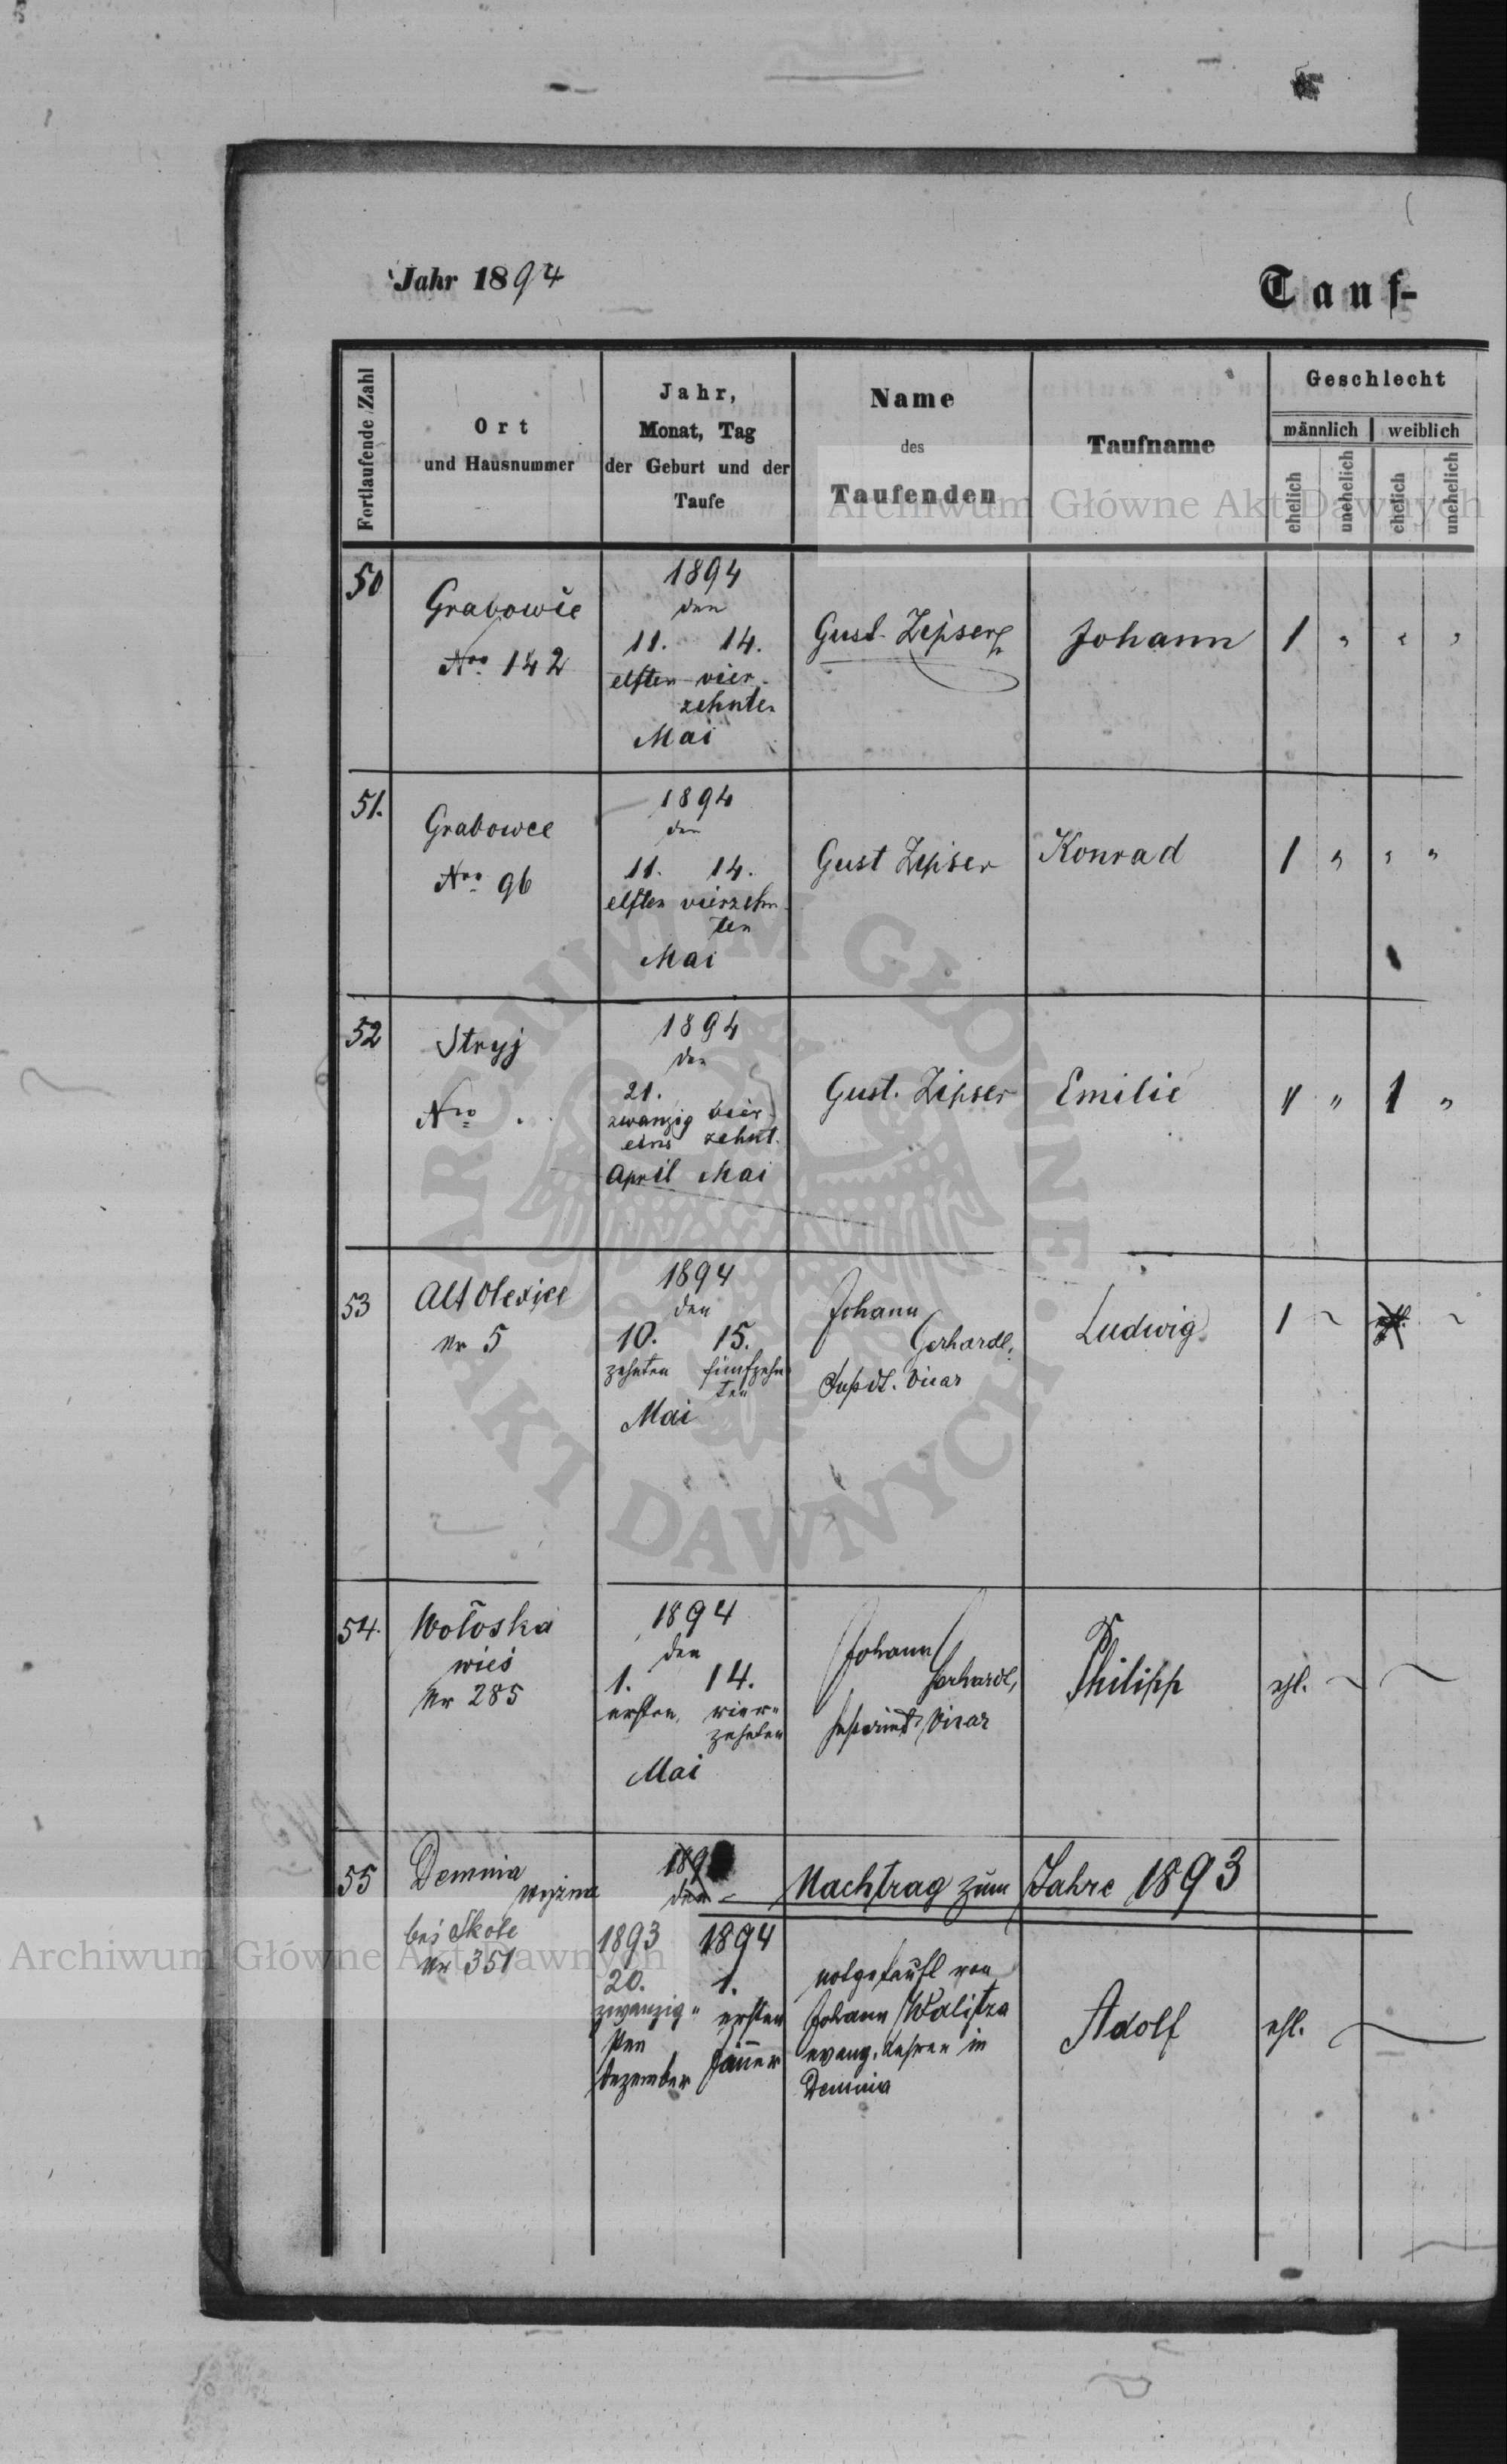 Jahr 1894
Tauf-
Fortlaufende Zahl
Ort
und Hausnummer
Jahr,
Monat, Tag
der Geburt und der
Taufe
Name
des
Taufenden
Taufname
Geschlecht
männlich
weiblich
ehelich
unehelich
ehelich
unehelich
Archiwum Główne Akt Dawnych
50
Grabowie
Nro 142
1894
den
11. 14.
elften vier-
zehnten
Mai
Gust. Zipser
Johann
1 " " "
51.
Grabowce
Nro 96
1894
den
11. 14.
elften vierzehn-
ten
Mai
Gust Zipser
Konrad
1 " " "
52
Stryj
Nro .
1894
den
21.
zwanzig vier-
eins zehnt.
April Mai
Gust. Zipser
Emilie
" " 1 "
53
Alt Olexice
Nr 5
1894
den
10. 15.
zehnten fünfzehn-
ten
Mai
Johann
Gerhardt,
Vicar
Ludwig
1 ~ ~
54.
Wołoska
wieś
Nr 285
1894
den
1. 14.
ersten, vier-
zehnten
Mai
Johann
Gerhardt,
Vicar
Philipp
ehl. ~ ~
55
Demnia
wyżna
bei Skole
Nr 351
189
den
Nachtrag zum Jahre 1893
1893 1894
20. 1.
zwanzig- ersten
sten
Dezember Jänner
notgetauft von
Johann Walitza
evang. Lehrer in
Demnia
Adolf
ehl.
Archiwum Główne Akt Dawnych
ARCHIWUM GŁÓWNE AKT DAWNYCH